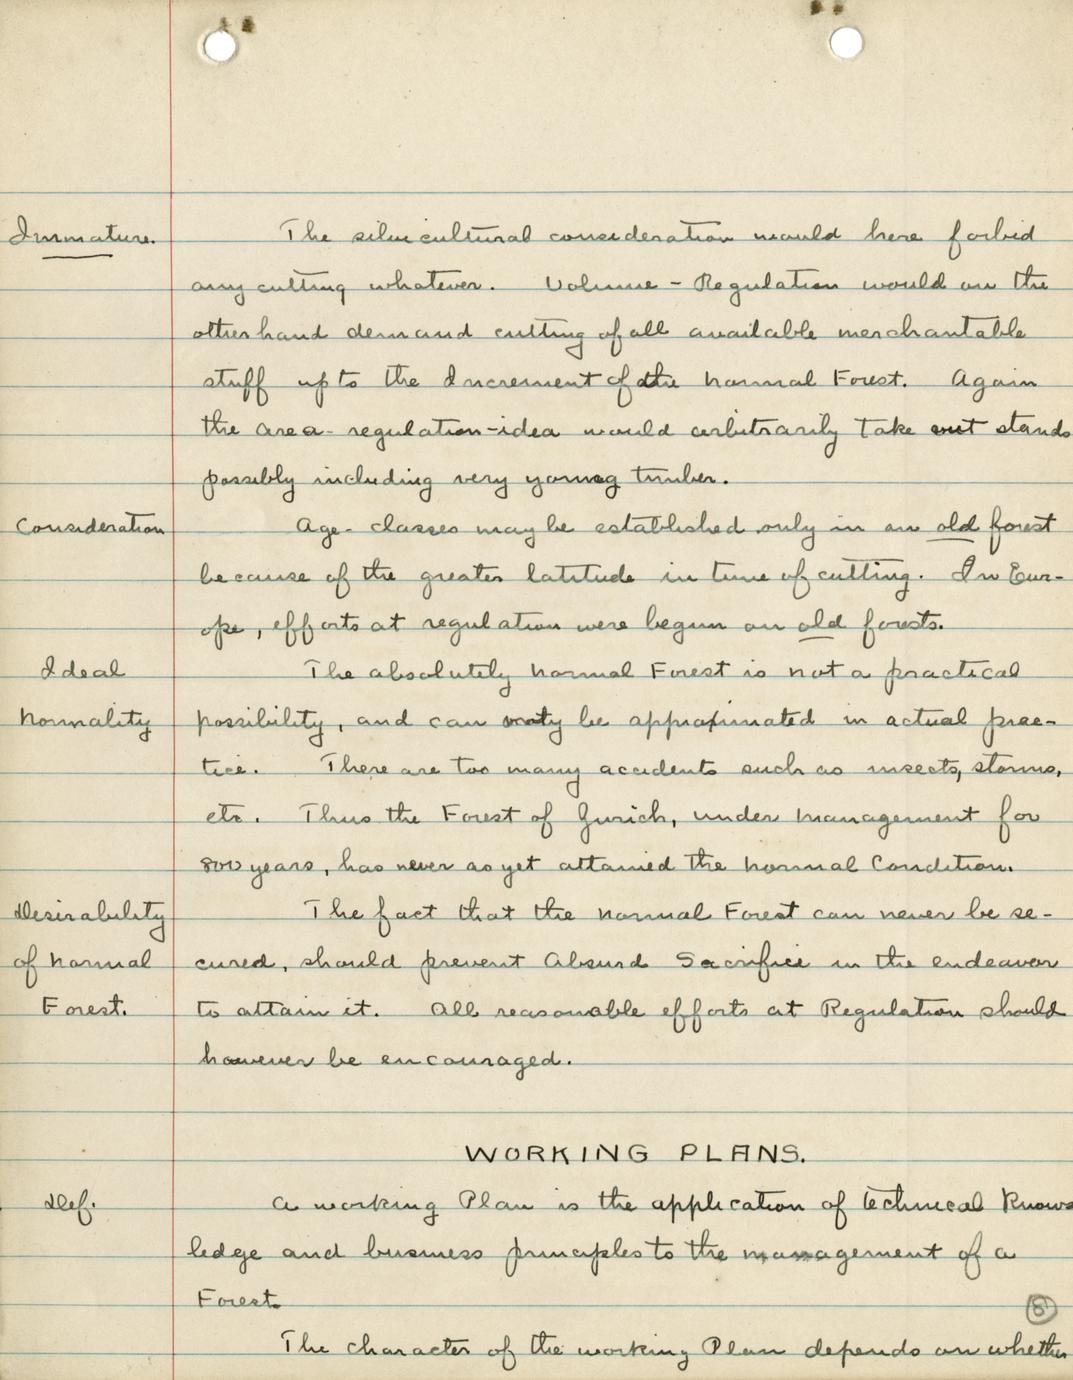 Immature. The silvicultural consideration would here forbid
any cutting whatever. Volume - Regulation would on the
other hand demand cutting of all available merchantable
stuff up to the Increment of the Normal Forest. Again
the area - regulation - idea would arbitrarily take out stands
possibly including very young timber.
Consideration Age - classes may be established only in an old forest
because of the greater latitude in time of cutting. In Eur-
ope, efforts at regulation were begun on old forests.
Ideal The absolutely Normal Forest is not a practical
Normality possibility, and can only be approximated in actual prac-
tice. There are too many accidents such as insects, storms,
etc. Thus the Forest of Zurich, under management for
800 years, has never as yet attained the Normal Condition.
Desirability The fact that the Normal Forest can never be se-
of Normal cured, should prevent Absurd Sacrifice in the endeavor
Forest. to attain it. All reasonable efforts at Regulation should
however be encouraged.
WORKING PLANS.
Def. A working Plan is the application of technical Know-
ledge and business principles to the management of a
Forest.
8
The character of the working Plan depends on whether